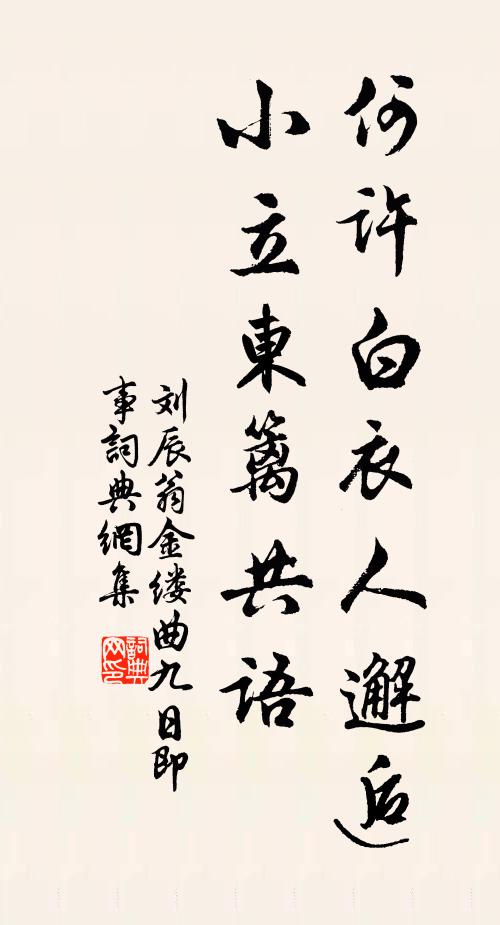 何許白衣人邂逅
小立東籬共语
刘辰翁金缕曲九日即
事詞典網集
詞典
网印